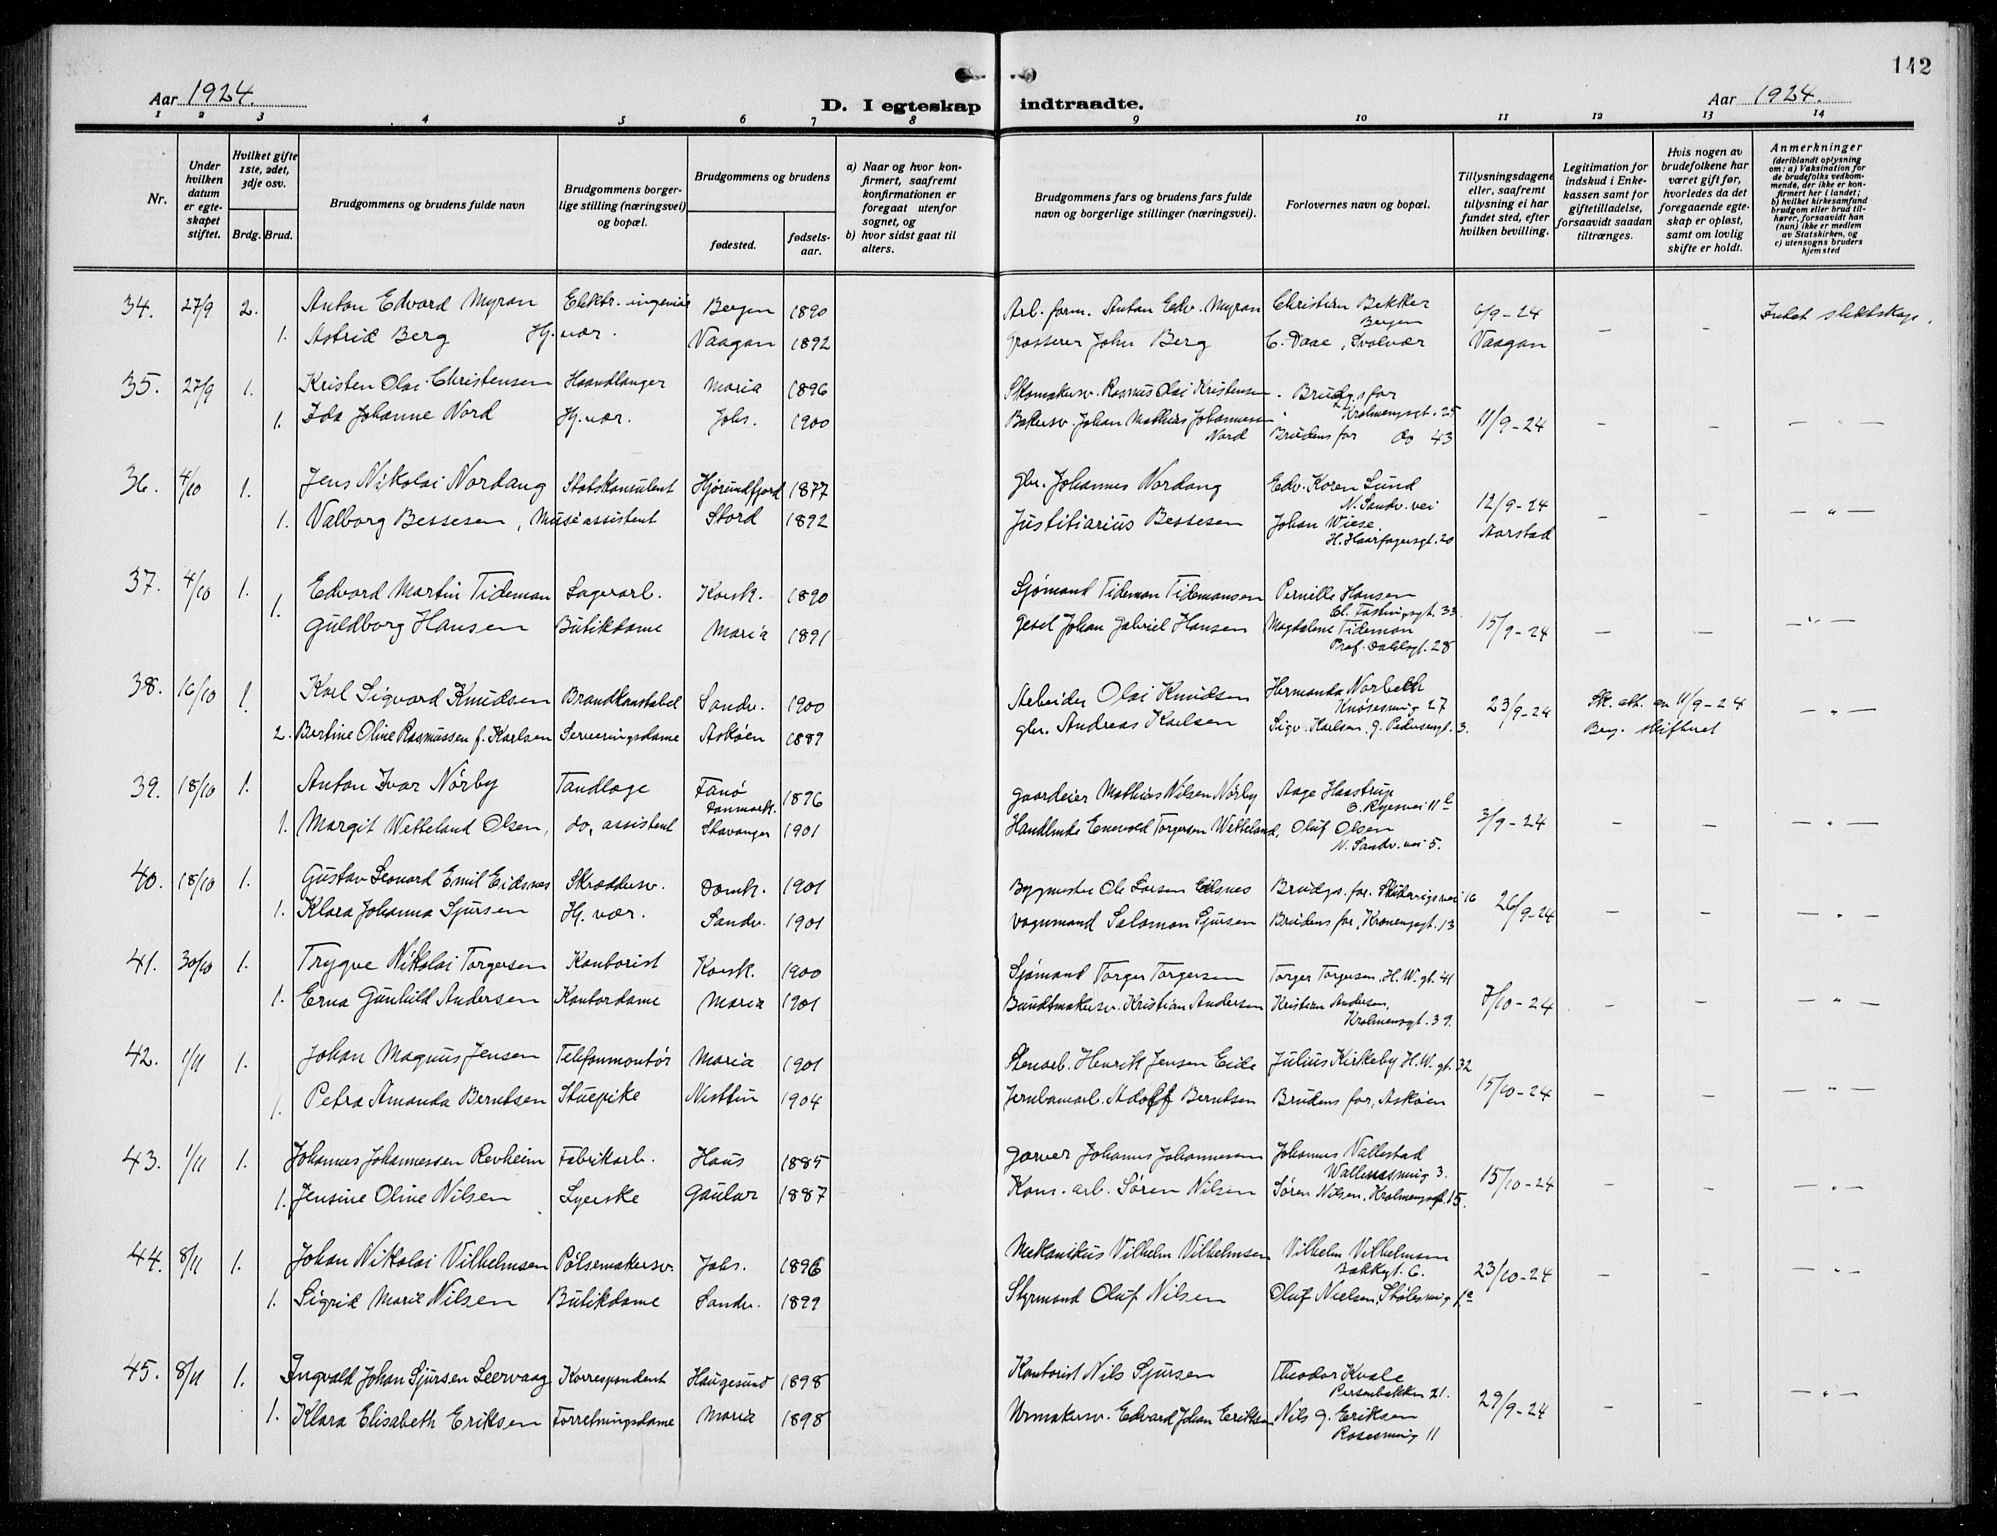 142
Aar 1924.
D. I egteskap indtraadte.
Aar 1924.
1 2 3 4 5 6 7 8 9 10 11 12 13 14
Nr.
Under hvilken datum er egteskapet stiftet.
Hvilket gifte 1ste, 2det, 3dje osv.
Brdg. Brud.
Brudgommens og brudens fulde navn
Brudgommens borgerlige stilling (næringsvei) og bopæl.
Brudgommens og brudens
fødested.
fødselsaar.
a) Naar og hvor konfirmert, saafremt konfirmationen er foregaat utenfor sognet, og
b) hvor sidst gaat til alters.
Brudgommens fars og brudens fars fulde navn og borgerlige stillinger (næringsvei).
Forlovernes navn og bopæl.
Tillysningsdagene eller, saafremt tillysning ei har fundet sted, efter hvilken bevilling.
Legitimation for indskud i Enkekassen samt for giftetilladelse, forsaavidt saadan tiltrænges.
Hvis nogen av brudefolkene har været gift før, hvorledes da det foregaaende egteskap er opløst, samt om lovlig skifte er holdt.
Anmerkninger
(deriblandt oplysning om: a) Vaksination for de brudefolks vedkommende, der ikke er konfirmert her i landet; b) hvilket kirkesamfund brudgom eller brud tilhører, forsaavidt han (hun) ikke er medlem av Statskirken, og c) utensogns bruders hjemsted
34. 27/9 2. Anton Edvard Myran Elektr. ingeniør Bergen 1890 Arb. form. Anton Edv. Myran Christian Bekker Bergen 6/9-24 Intet slektskap.
1. Astrid Berg Hj. vær. Vaagan 1892 Grosserer John Berg C. Daae, Svolvær Vaagan – –
35. 27/9 1. Kristen Olai Christensen Haandlanger Maria 1896 Skomakersv. Rasmus Olai Kristensen Brudgs far Krohnengsgt. 25
1. Ida Johanne Nord Hj. vær. Johs. 1900 Bakersv. Johan Mathias Johannessen Nord Brudens far do 43 11/9-24 – – – " –
36. 4/10 1. Jens Nikolai Nordang Statskonsulent Hjørundfjord 1877 Gbr. Johannes Nordang Edv. Koren Lund N. Sandv. vei 12/9-24
1. Valborg Bessesen, Museassistent Stord 1892 Justitiarius Bessesen Johan Wiese, H. Haarfagersgt. 20 Aarstad – – – " –
37. 4/10 1. Edvard Martin Tideman Sagarb. Korsk. 1890 Sjømand Tideman Tidemansen Pernille Hansen
1. Guldborg Hansen Butikdame Maria 1891 Gesel Johan Gabriel Hansen Magdalene Tideman Prof. Dahlsgt. 28 15/9-24 – – – " –
38. 16/10 1. Karl Sigvard Knudsen Brandkonstabel Sandv. 1900 Arbeider Olai Knudsen Hermanda Norbeth Knøsesmug 27 23/9-24 Sk. att. av 11/9-24 – " –
2. Bertine Oline Rasmussen f. Karlsen Serveringsdame Askøen 1889 gbr. Andreas Karlsen Sigv. Karlsen, J. Pedersensgt. 3. Berg. skifteret
39. 18/10 1. Anton Ivar Nørby Tandlæge Fanø Danmark. 1896 Gaardeier Mathias Nilsen Nørby Aage Haastrup O. Ryesvei 11
1. Margit Wetteland Olsen, do, assistent Stavanger 1901 Handlende Enevold Torgersen Wetteland, Oluf Olsen N. Sandv. vei 5. 3/9-24 – – – " –
40. 18/10 1. Gustav Leonard Emil Eidsnes Skræddersv. Domk. 1901 Bygmester Ole Larsen Eidsnes Brudgs. far. Skuteviksvei 16 26/9-24
1. Klara Johanna Sjursen Hj. vær. Sandv. 1901 Vognmand Salomon Sjursen Brudens far, Kronengsgt. 13 – – – " –
41. 30/10 1. Trygve Nikolai Torgersen Kontorist Korsk. 1900 Sjømand Torger Torgersen Torger Torgersen, H. W. gt. 41
1. Erna Gunhild Andersen Kontordame Maria 1901 Bundtmakersv. Kristian Andersen Kristian Andersen, Krohnensgt. 39. 7/10-24 – – – " –
42. 1/11 1. Johan Magnus Jensen Telefonmontør Maria 1901 Stenarb. Henrik Jensen Eide Julius Kirkeby H. W. gt. 32
1. Petra Amanda Berntsen Stuepike Nesttun 1904 Jernbanearb. Adolf Berntsen Brudens far, Askøen 15/10-24 – – – " –
43. 1/11 1. Johannes Johannessen Revheim Fabrikarb. Haus 1885 Garver Johannes Johannessen Johannes Vallestad 3.
1. Jensine Oline Nilsen Syerske Gaular 1887 Kom. arb. Søren Nilsen Søren Nilsen, Krohnengsgt. 15. 15/10-24 – – – " –
44. 8/11 1. Johan Nikolai Vilhelmsen Pølsemakersv. Johs. 1896 Mekanikus Vilhelm Vilhelmsen Vilhelm Vilhelmsen Bakkegt. 6.
1. Sigrid Marie Nilsen Butikdame Sandv. 1899 Styrmand Oluf Nilsen Oluf Nielsen, Stølesmug 1a 23/10-24 – – – " –
45. 8/11 1. Ingvald Johan Sjursen Leervaag Korrespondent Haugesund 1898 Kontorist Nils Sjursen Theodor Kvale Persenbakken 21.
1. Klara Elisabeth Eriksen Forretningsdame Maria 1898 Urmakersv. Edvard Johan Eriksen Nils G. Eriksen Rosesmug 11 29/9-24 – – – " –